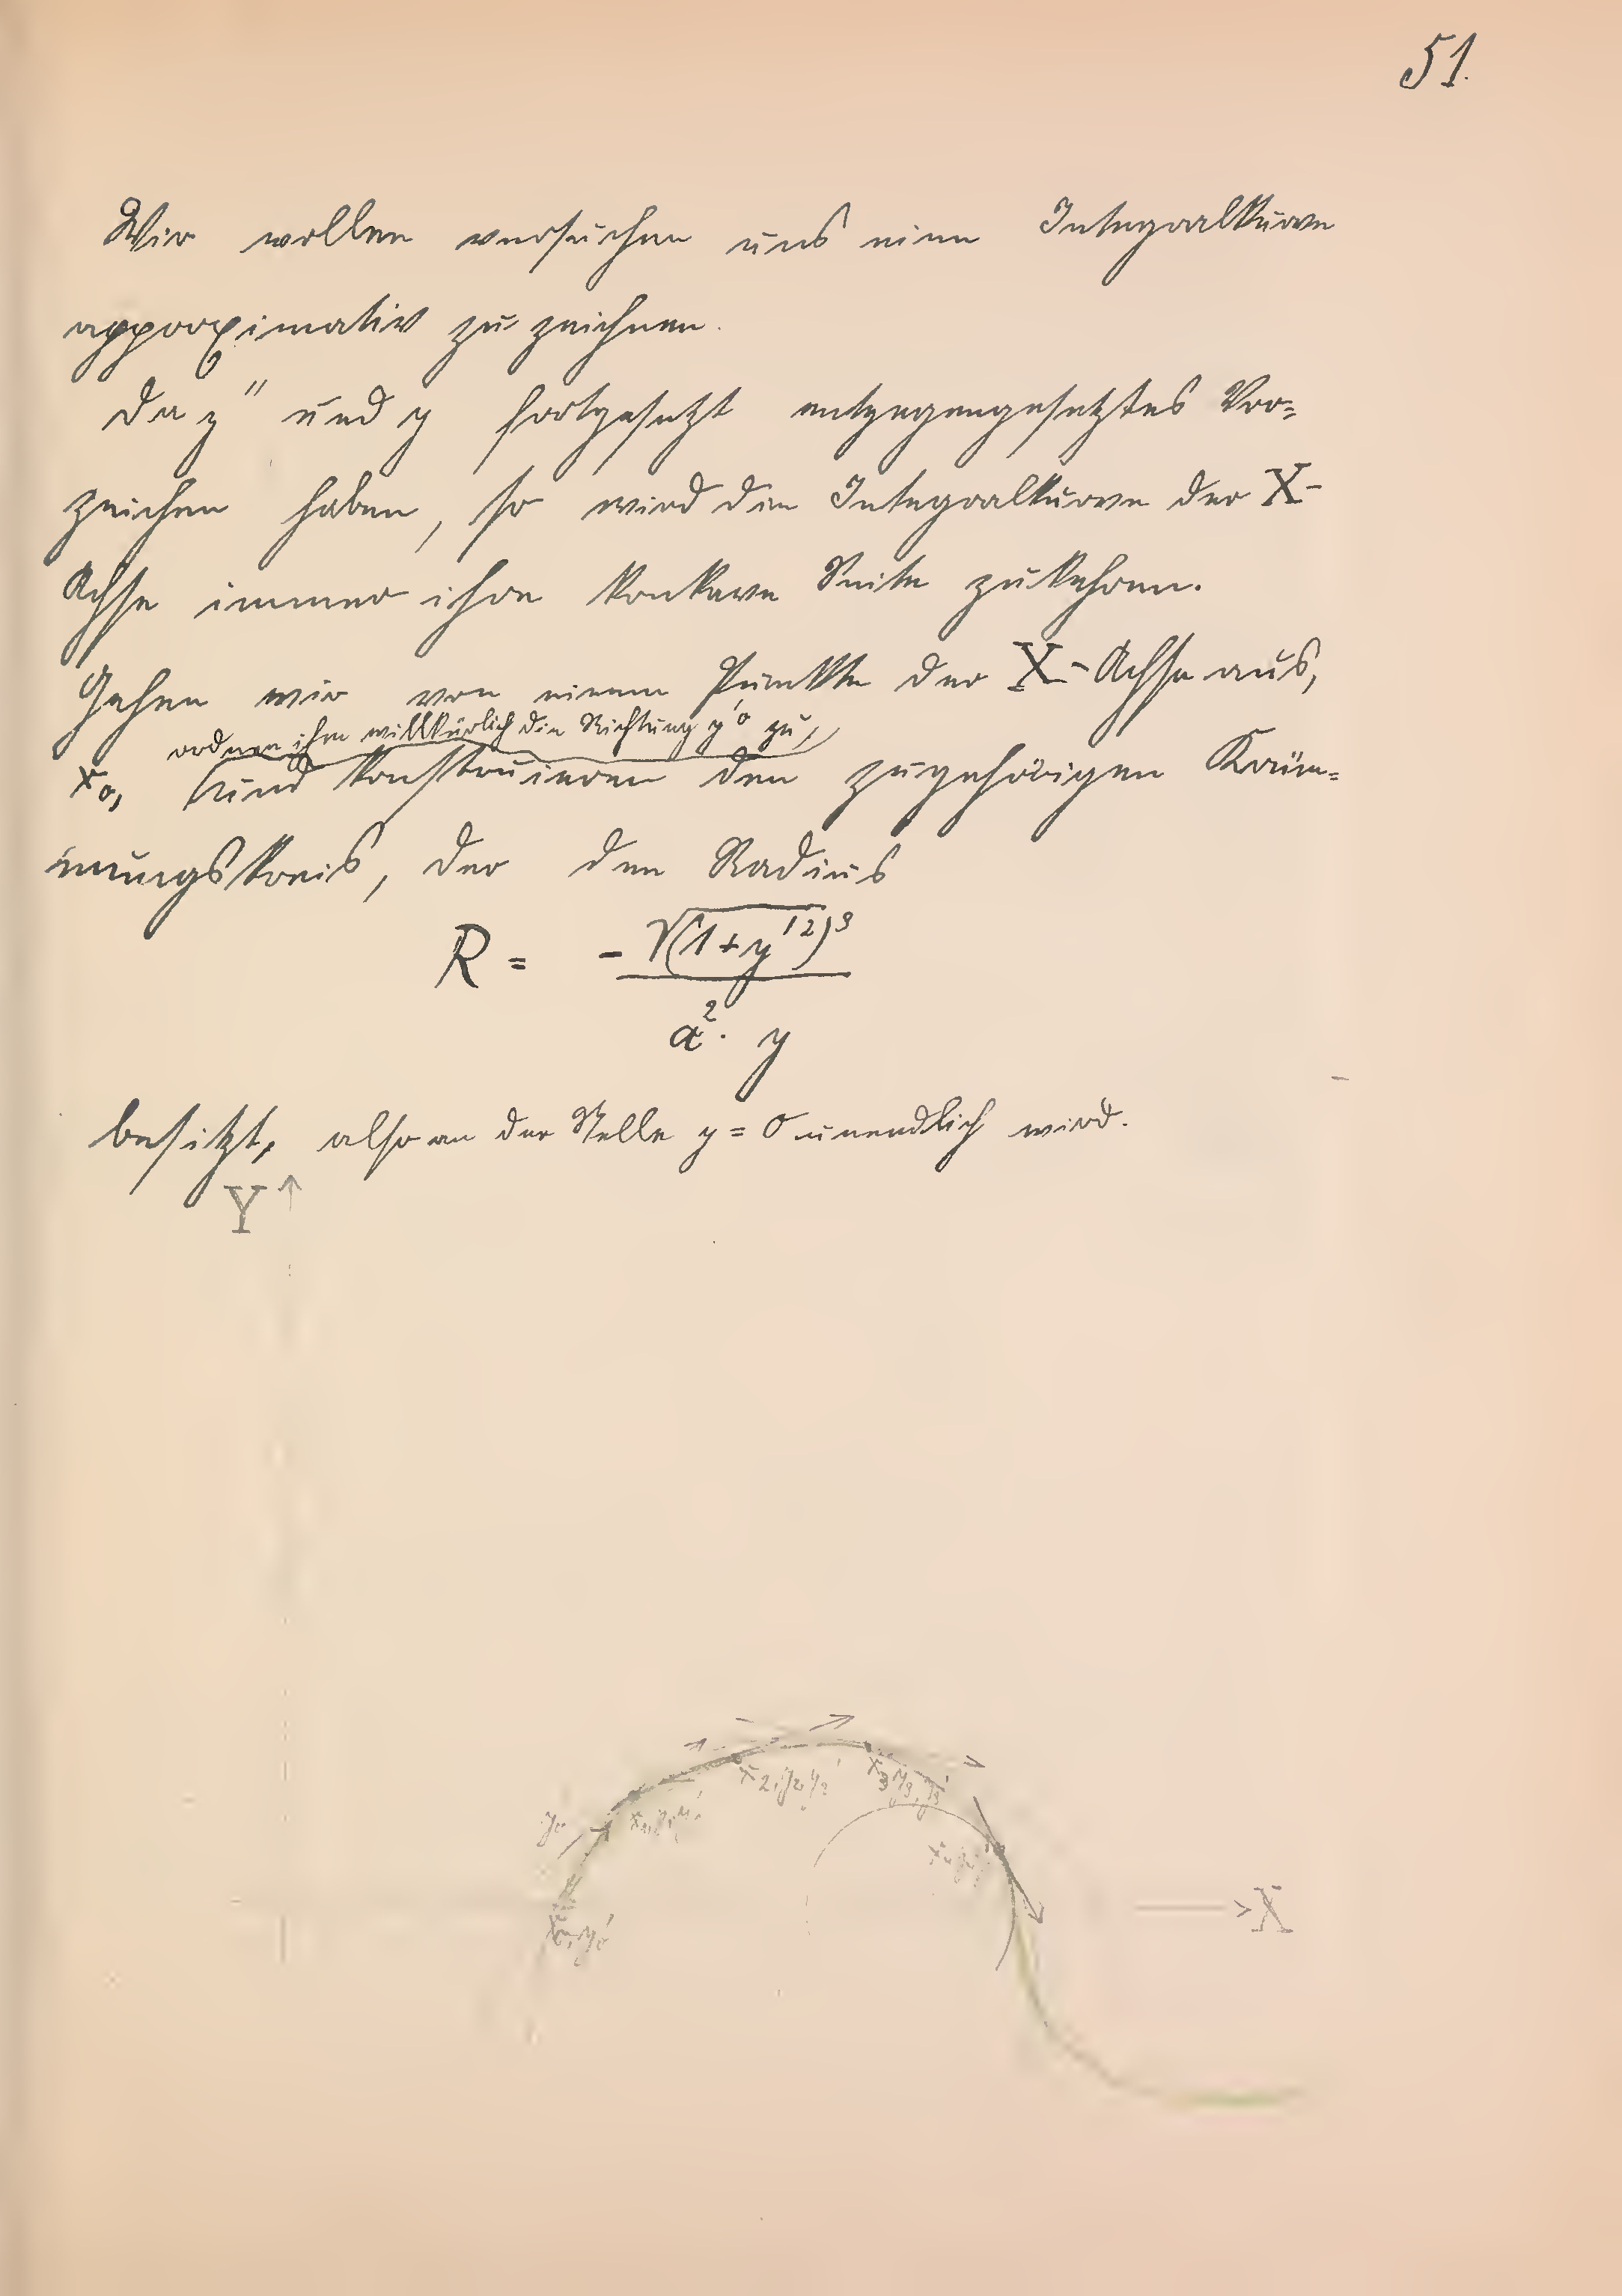 51.
Wir wollen versuchen uns eine Integralkurve
approximativ zu zeichnen.
Da y'' und y fortgesetzt entgegengesetztes Vor=
zeichen haben, so wird die Integralkurve der X-
Achse immer ihre konkave Seite zukehren.
Gehen wir von einem Punkte der X-Achse aus,
ordnen ihm willkürlich die Richtung y'0 zu,
x0, und konstruieren den zugehörigen Krüm=
mungskreis, der den Radius
R = - √(1+y'²)³ / a² · y
besitzt, also an der Stelle y = 0 unendlich wird.
Y
x2, y2, y2'
x3, y3, y3'
X